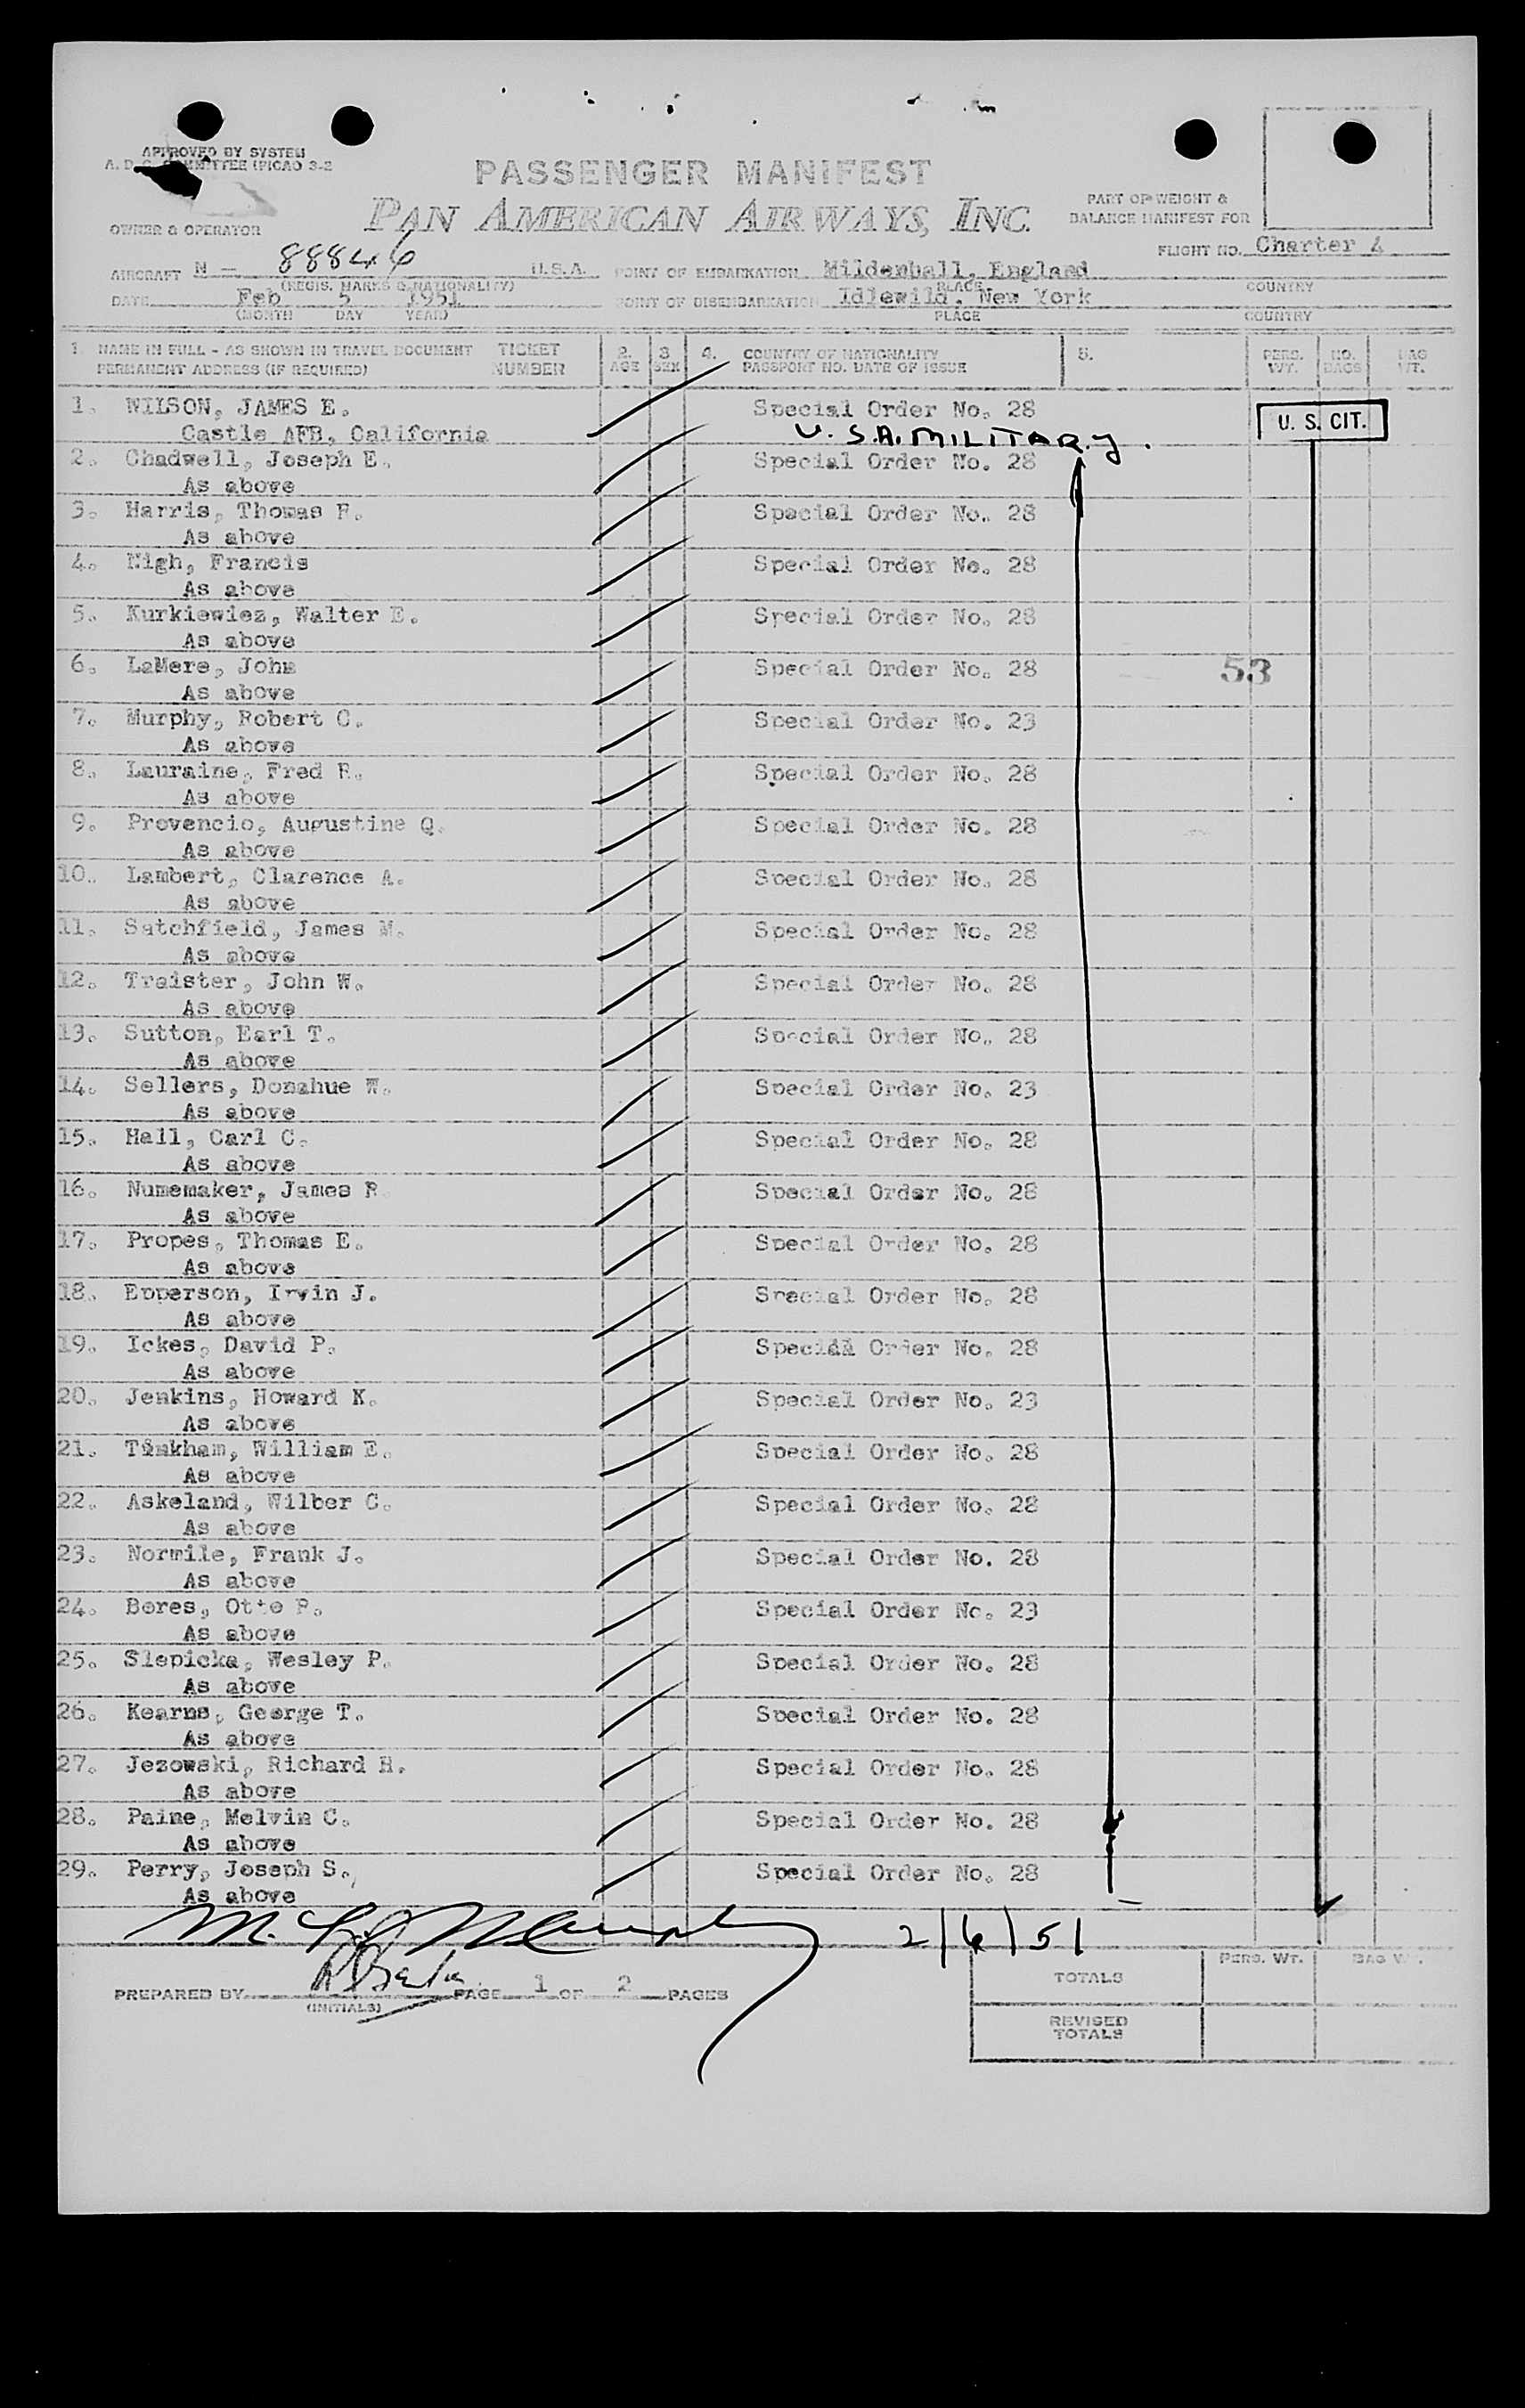 APPROVED BY SYSTEM
A. D. C. COMMITTEE (PICAO 3-2
PASSENGER MANIFEST
PAN AMERICAN AIRWAYS, INC.
PART OF WEIGHT &
BALANCE MANIFEST FOR
OWNER & OPERATOR
FLIGHT NO. Charter 4
AIRCRAFT N - 88846 U.S.A. POINT OF EMBARKATION Mildenhall, England
(REGIS. MARKS & NATIONALITY) PLACE COUNTRY
DATE Feb 5 1951 POINT OF DISEMBARKATION Idlewild, New York
(MONTH DAY YEAR) PLACE COUNTRY
1. NAME IN FULL - AS SHOWN IN TRAVEL DOCUMENT TICKET 2. 3 4. COUNTRY OF NATIONALITY 5. PERS. NO. BAG
PERMANENT ADDRESS (IF REQUIRED) NUMBER AGE SEX PASSPORT NO. DATE OF ISSUE WT. BAGS WT.
1. WILSON, JAMES E. Special Order No. 28 U. S. CIT.
Castle AFB, California U.S.A. MILITARY.
2. Chadwell, Joseph E. Special Order No. 28
As above
3. Harris, Thomas F. Special Order No. 28
As above
4. Nigh, Francis Special Order No. 28
As above
5. Kurkiewiez, Walter E. Special Order No. 28
As above
6. LaMere, John Special Order No. 28 53
As above
7. Murphy, Robert C. Special Order No. 28
As above
8. Lauraine, Fred R. Special Order No. 28
As above
9. Provencio, Augustine Q. Special Order No. 28
As above
10. Lambert, Clarence A. Special Order No. 28
As above
11. Satchfield, James M. Special Order No. 28
As above
12. Traister, John W. Special Order No. 28
As above
13. Sutton, Earl T. Special Order No. 28
As above
14. Sellers, Donahue W. Special Order No. 28
As above
15. Hall, Carl C. Special Order No. 28
As above
16. Numemaker, James R. Special Order No. 28
As above
17. Propes, Thomas E. Special Order No. 28
As above
18. Epperson, Irvin J. Special Order No. 28
As above
19. Ickes, David P. Special Order No. 28
As above
20. Jenkins, Howard K. Special Order No. 28
As above
21. Tinkham, William E. Special Order No. 28
As above
22. Askeland, Wilber C. Special Order No. 28
As above
23. Normile, Frank J. Special Order No. 28
As above
24. Beres, Otto P. Special Order No. 28
As above
25. Slepicka, Wesley P. Special Order No. 28
As above
26. Kearns, George T. Special Order No. 28
As above
27. Jezowski, Richard H. Special Order No. 28
As above
28. Paine, Melvin C. Special Order No. 28
As above
29. Perry, Joseph S. Special Order No. 28
As above
2/6/51
PERS. WT. BAG WT.
TOTALS
PREPARED BY PAGE 1 OF 2 PAGES
(INITIALS)
REVISED
TOTALS